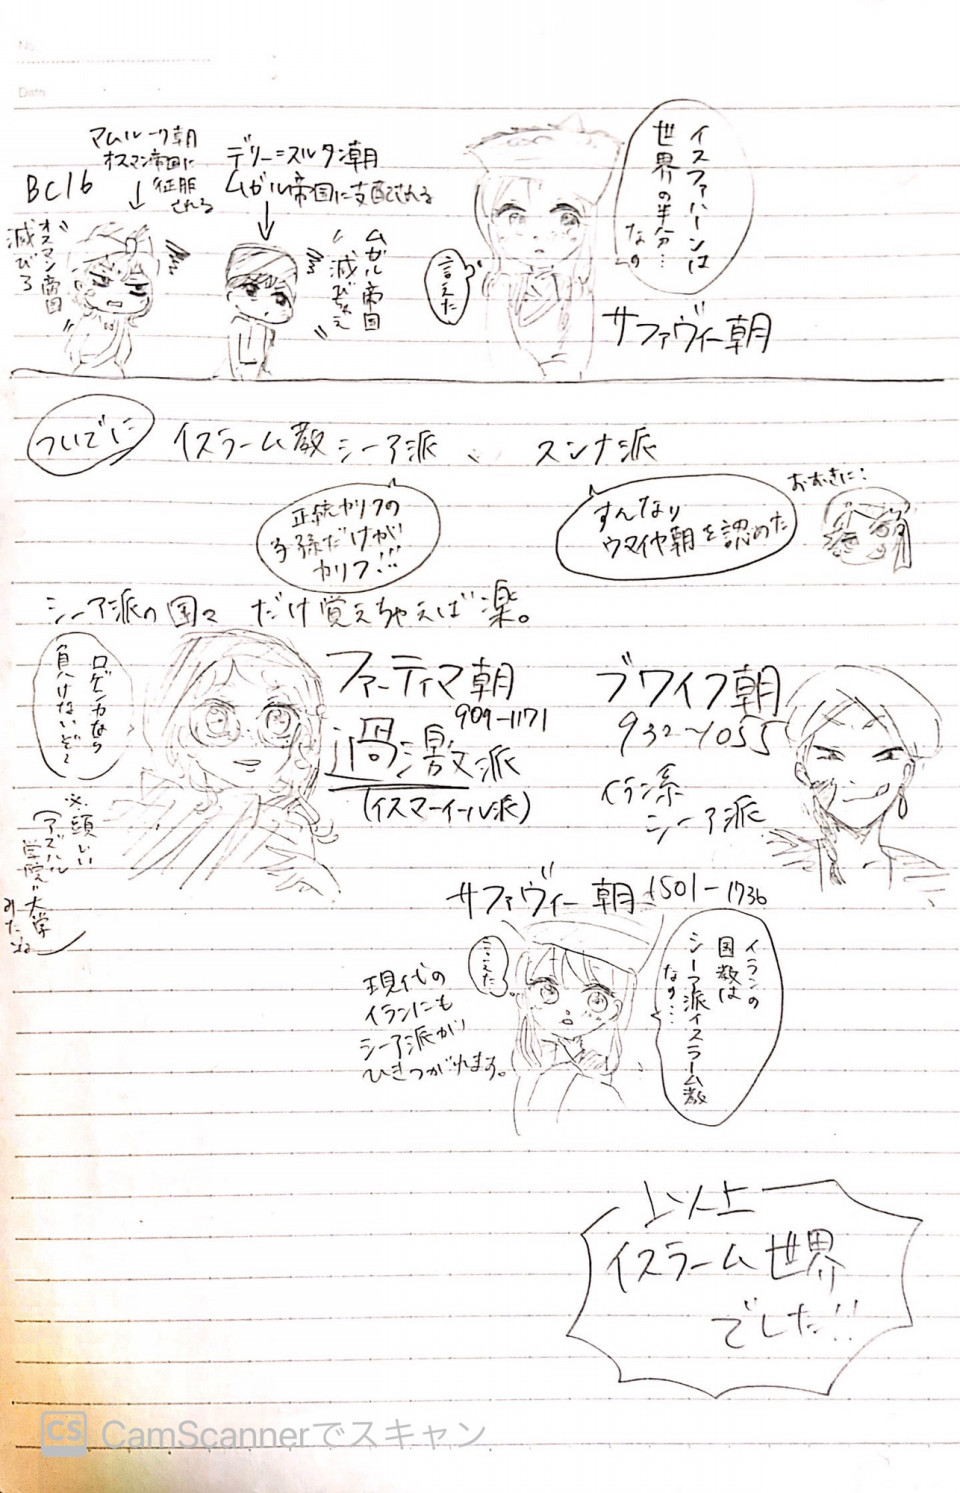 No.
Date
BC16
マムルーク朝
オスマン帝国に
征服
される
↓
オスマン帝国
滅びろ
デリー=スルタン朝
ムガル帝国に支配される
↓
ムガル帝国
滅びちゃえ
イスファハーンは
世界の半分…
なの
言えた
サファヴィー朝
ついでに
イスラーム教シーア派、スンナ派
正統カリフの
子孫だけが
カリフ!!!
すんなり
ウマイヤ朝を認めた
おおきに!
シーア派の国々 だけ覚えちゃえば楽。
口ゲンカなら
負けないぞ〜
※頭いい
(アズハル
学院"大学
みたいな
ファーティマ朝
909-1171
過激派
(イスマーイール派)
ブワイフ朝
932〜1055
イラン系
シーア派
サファヴィー朝 1501-1736
言えた
イランの
国教は
シーア派イスラーム教
なの…
現代の
イランにも
シーア派が
ひきつがれてる。
以上
イスラーム世界
でした!!
CS CamScannerでスキャン